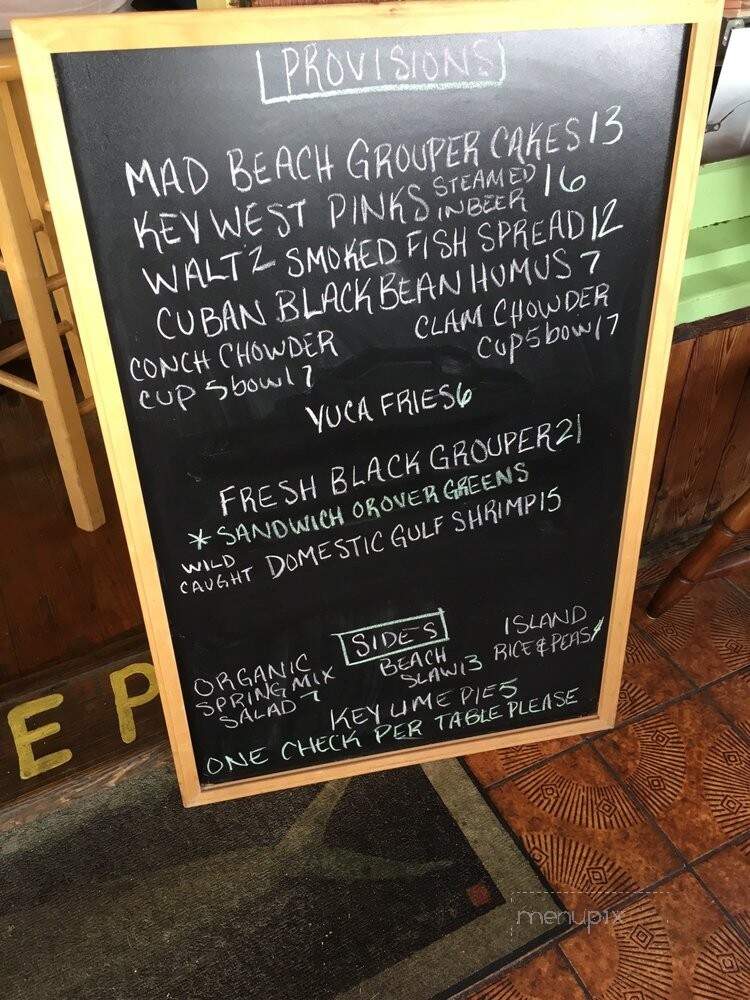 PROVISIONS
MAD BEACH GROUPER CAKES 13
KEY WEST PINKS STEAMED IN BEER 16
WALTZ SMOKED FISH SPREAD 12
CUBAN BLACK BEAN HUMUS 7
CONCH CHOWDER
CUP 5 bowl 7
CLAM CHOWDER
Cup 5 bowl 7
YUCA FRIES 6
FRESH BLACK GROUPER 21
* SANDWICH OR OVER GREENS
WILD CAUGHT DOMESTIC GULF SHRIMP 15
SIDES
ORGANIC
SPRING MIX
SALAD 7
BEACH
SLAW 3
ISLAND
RICE & PEAS 4
KEY LIME PIE 5
ONE CHECK PER TABLE PLEASE
EP
menupix